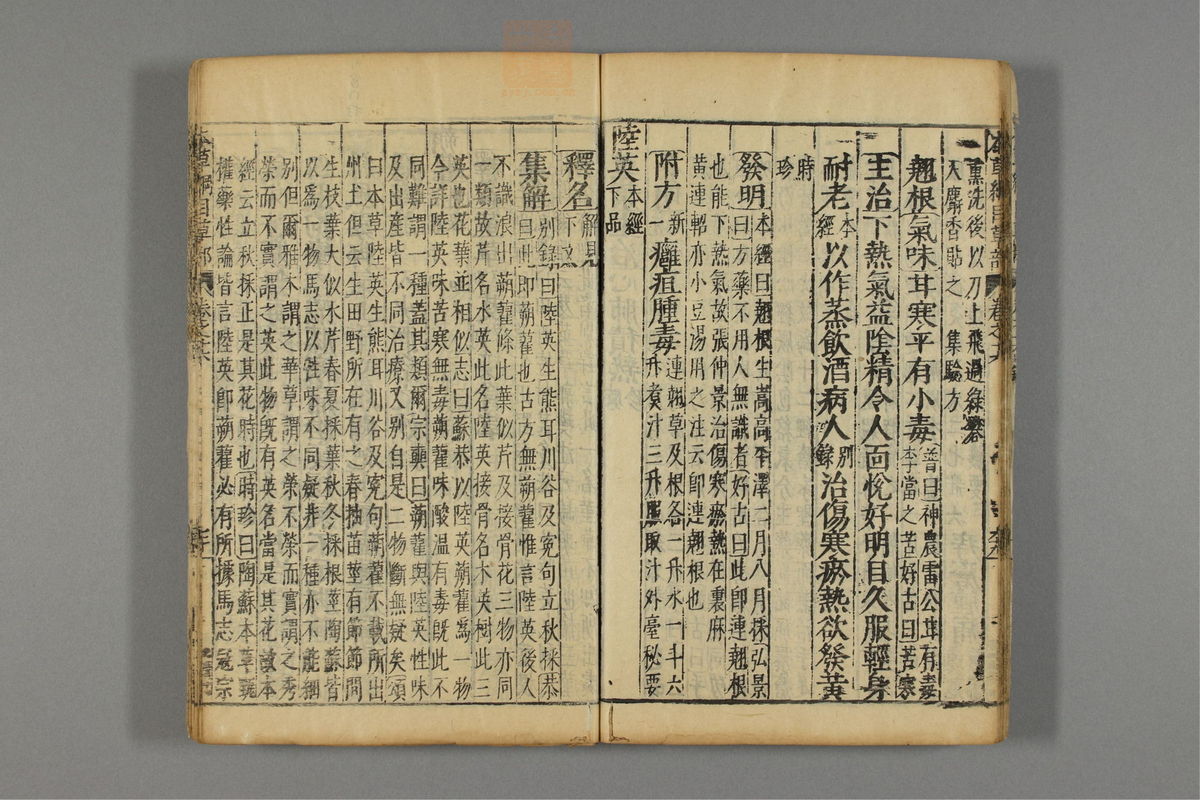 本草綱目草部
熏洗後以刀上飛過綠礬
入麝香貼之 集驗方
翹根氣味甘寒平有小毒 普曰神農雷公甘有毒
李當之苦好古曰苦寒
主治下熱氣益陰精令人面悅好明目久服輕身
耐老 本經 以作蒸飲酒病人 別錄 治傷寒瘀熱欲發黃
時珍
發明 本經曰翹根生嵩高平澤二月八月採弘景
曰方藥不用人無識者好古曰此卽連翹根
也能下熱氣故張仲景治傷寒瘀熱在裏麻
黃連軺亦小豆湯用之注云卽連翹根也
附方 新一 癰疽腫毒 連翹草及根各一升水一斗六
升煮汁三升服取汁外臺秘要
陸英 本經下品
釋名 解見下文
集解 別錄曰陸英生熊耳川谷及冤句立秋採恭
曰此卽蒴藋也古方無蒴藋惟言陸英後人
不識浪出蒴藋條此葉似芹及接骨花三物亦同
一類故芹名水英此名陸英接骨名木英樹此三
英也花葉並相似志曰蘇恭以陸英蒴藋爲一物
今詳陸英味苦寒無毒蒴藋味酸溫有毒既此不
同難謂一種蓋其類爾宗奭曰蒴藋與陸英性味
及出產皆不同治療又別自是二物斷無疑矣頌
曰本草陸英生熊耳川谷及冤句蒴藋不載所出
州土但云生田野所在有之春抽苗莖有節節間
生枝葉大似水芹春夏採葉秋冬採根莖陶蘇皆
以爲一物馬志以性味不同疑非一種亦不能細
別但爾雅木謂之華草謂之榮不榮而實謂之秀
榮而不實謂之英此物既有英名當是其花故本
經云立秋採正是其花時也時珍曰陶蘇本草甄
權藥性論皆言陸英卽蒴藋必有所據馬志寇宗
本草綱目草部